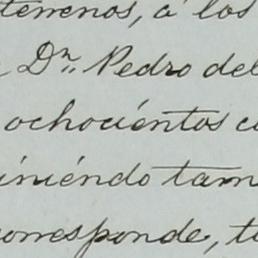 terrenos, á los
Dn. Pedro del
ochociéntos c
iniéndo tam
corresponde, t